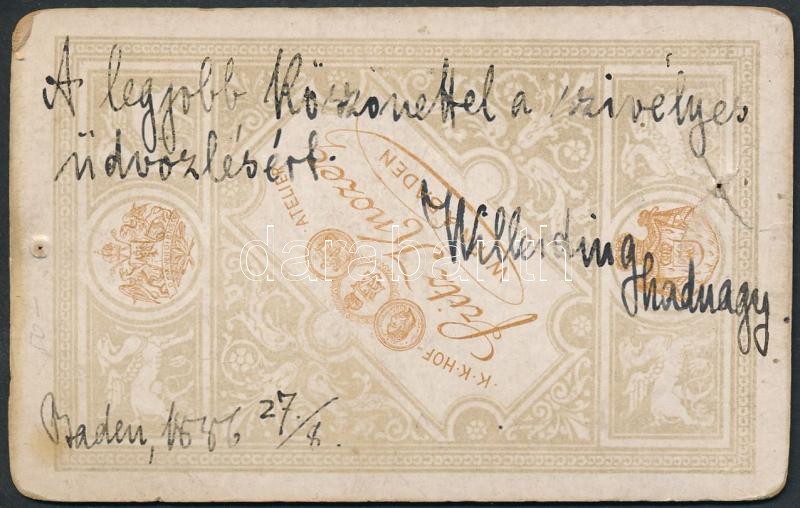 A legjobb Köszönettel a szivélyes
üdvözlésért.
Willerding
főhadnagy
Baden, 1886 27./8.
K.K.HOF-ATELIER
Fritz Knozer
WIEN BADEN
darabanth